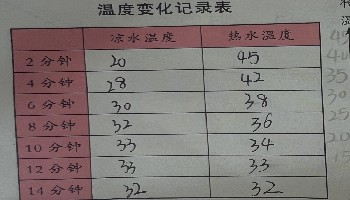 温度变化记录表
凉水温度 热水温度
2分钟 20 45
4分钟 28 42
6分钟 30 38
8分钟 32 36
10分钟 33 34
12分钟 33 33
14分钟 32 32
45
40
35
30
25
20
15